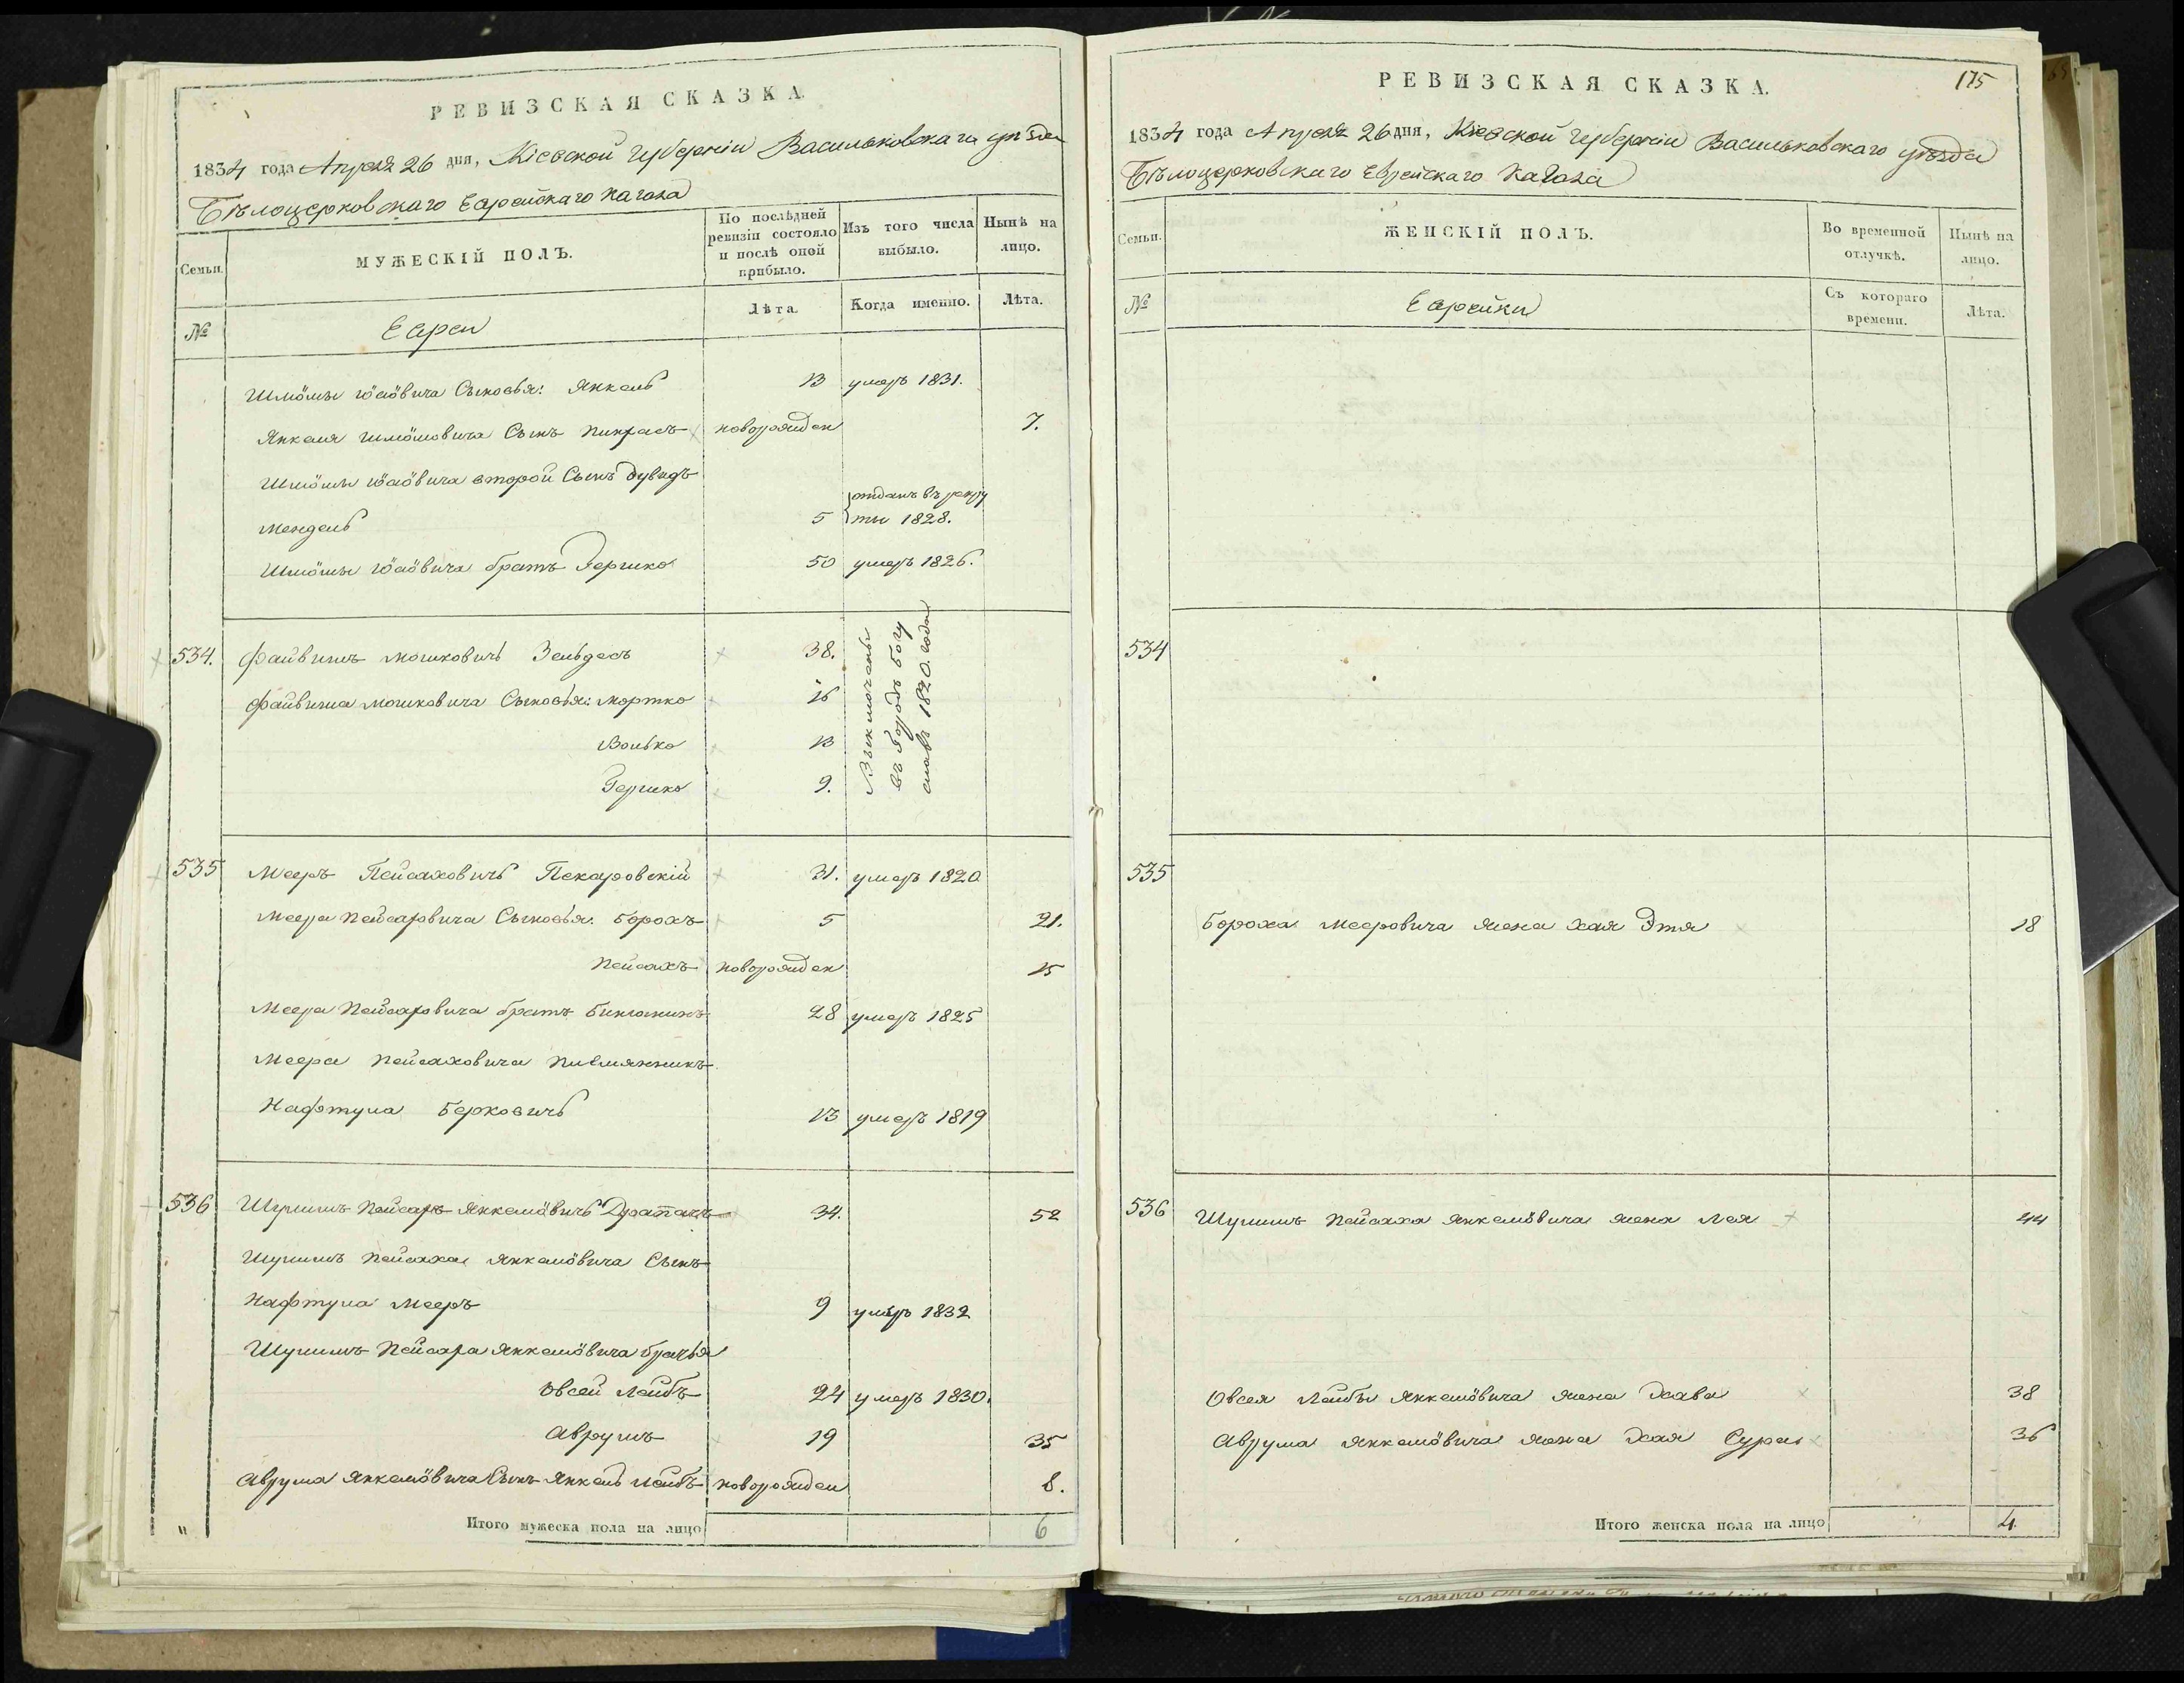 РЕВИЗСКАЯ СКАЗКА.
1834 года Апреля 26 дня, Кіевской Губерніи Васильковскаго уѣзда
Бѣлоцерковскаго Еврейскаго Кагала
Семьи.
МУЖЕСКІЙ ПОЛЪ.
По послѣдней ревизіи состояло и послѣ оной прибыло.
Изъ того числа выбыло.
Нынѣ на лицо.
№
Евреи
Лѣта.
Когда именно.
Лѣта.
Шмöмы Іöсöвича Сыновья: Янкель 13 умеръ 1831.
Янкеля Шмöмовича Сынъ Пинхасъ новорожден 7.
Шмöмы Іöсöвича второй Сынъ Дувидъ
Мендель 5 отданъ въ рекру
ты 1828.
Шмöмы Іöсöвича братъ Гершко 50 умеръ 1826.
534. Файвишъ Мошковичъ Зельдесъ 38.
Файвиша Мошковича Сыновья: Мортко 16
Волько 13
Гершко 9.
Выключены
въ Городъ Богу
славъ 1820. года
535 Мееръ Пейсаховичъ Пекаровскій 31. умеръ 1820
Меера Пейсаховича Сыновья: Борохъ 5 21.
Пейсахъ новорожден 15
Меера Пейсаховича братъ Биньминъ 28 умеръ 1825
Меера Пейсаховича Пивмянникъ
Нафтула Берковичъ 13 умеръ 1819
536 Шулимъ Пейсахъ Янкелöвичъ Дратачъ 34. 52
Шулимъ Пейсаха Янкелöвича Сынъ
Нафтула Мееръ 9 умеръ 1832
Шулимъ Пейсаха Янкелöвича братья
Овсей Лейбъ 24 умеръ 1830.
Аврумъ 19 35
Аврума Янкелöвича Сынъ Янкель Лейбъ новорожден 8.
Итого мужеска пола на лицо 6
175
РЕВИЗСКАЯ СКАЗКА.
1834 года Апреля 26 дня, Кіевской Губерніи Васильковскаго уѣзда
Бѣлоцерковскаго Еврейскаго Кагала
Семьи.
ЖЕНСКІЙ ПОЛЪ.
Во временной отлучкѣ.
Нынѣ на лицо.
№
Еврейки
Съ котораго времени.
Лѣта.
534
535
Бороха Мееровича жена Хая Этя 18
536 Шулимъ Пейсаха Янкелöвича жена Лея 44
Овсея Лейбы Янкелöвича жена Хава 38
Аврума Янкелöвича жена Хая Сура 36
Итого женска пола на лицо 4.